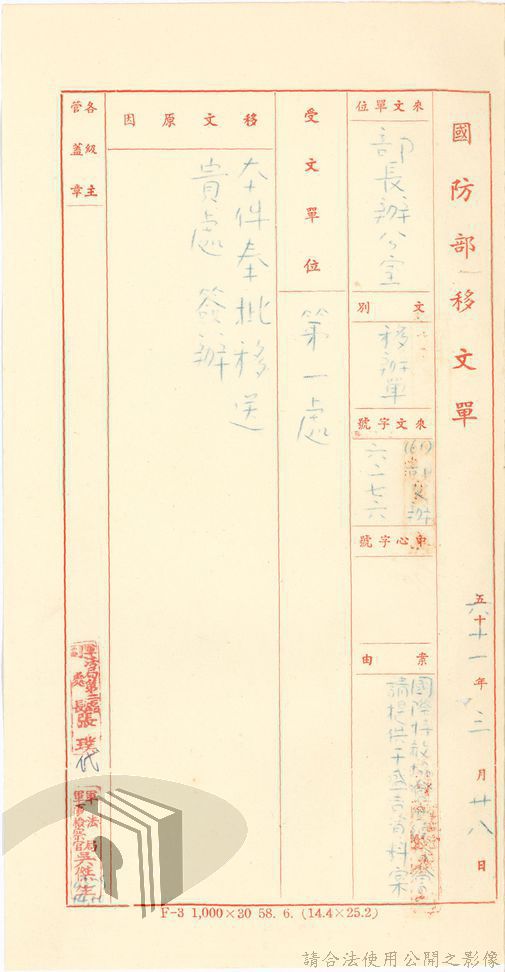 國防部移文單
六十一年三月廿八日
來文單位
部長辦公室
文別
移辦單
來文字號
六二七六
中心字號
案由
國際特赦
請提供于
資料案
受文單位
第一處
移文原因
本件奉批移送
貴處簽辦
各級主管蓋章
處長張璞代
軍法局
吳傑
F-3 1,000×30 58. 6. (14.4×25.2)
請合法使用公開之影像